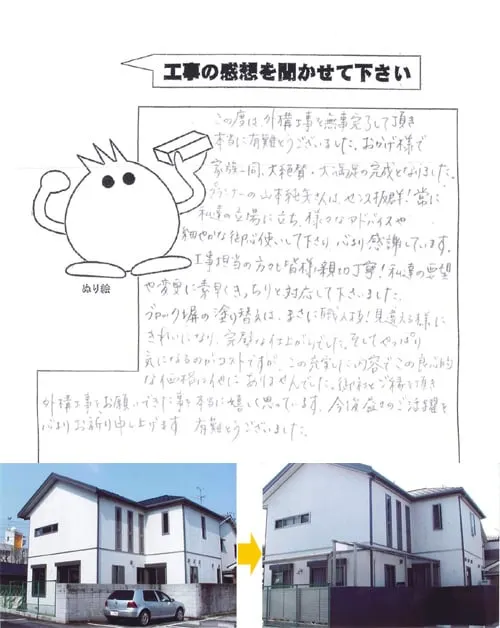 工事の感想を聞かせて下さい
この度は、外構工事を無事完了して頂き
本当に有難とうございました。おかげ様で
家族一同、大絶賛・大満足の完成となりました。
プランナーの山本純矢さんは、センス抜群!常に
私達の立場に立ち、様々なアドバイスや
細やかな御心使いして下さり、心より感謝しています。
工事担当の方々も皆様親切丁寧!私達の要望
や変更に素早くきっちりと対応して下さいました。
ブロック塀の塗り替えは、まさに職人技!見違える様に
きれいになり、完璧な仕上がりでした。そしてやっぱり
気になるのがコストですが、この充実した内容でこの良心的
な価格は他にありませんでした。御社とご縁を頂き
外構工事をお願いできた事を本当に嬉しく思っています。今後益々のご活躍を
心よりお祈り申し上げます。有難とうございました。
ぬり絵